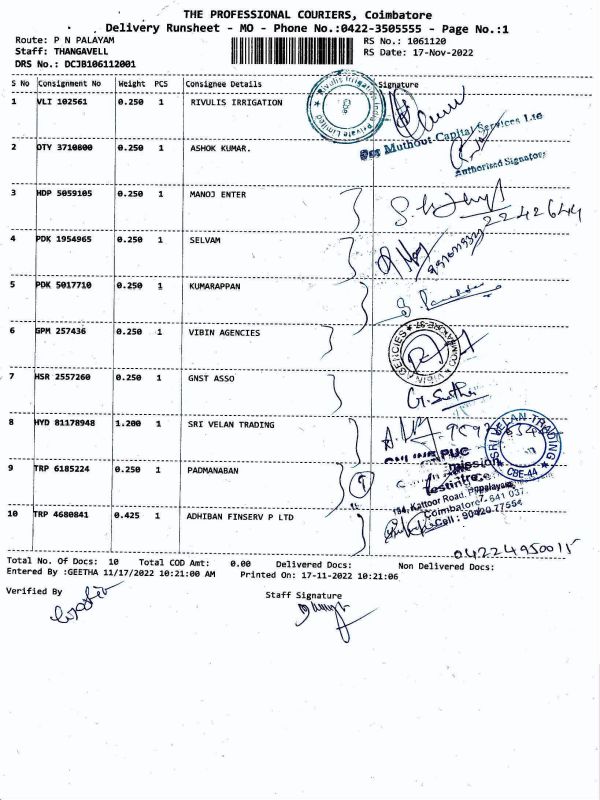 THE PROFESSIONAL COURIERS, Coimbatore
Delivery Runsheet - MO - Phone No.:0422-3505555 - Page No.:1
Route: P N PALAYAM RS No.: 1061120
Staff: THANGAVELL RS Date: 17-Nov-2022
DRS No.: DCJB106112001
S No Consignment No Weight PCS Consignee Details Signature
1 VLI 102561 0.250 1 RIVULIS IRRIGATION
Rivulis Irrigation India Private Limited
CBE
Muthoot Capital Services Ltd
Authorised Signatory
2 OTY 3710800 0.250 1 ASHOK KUMAR.
3 HDP 5059105 0.250 1 MANOJ ENTER
2242644
4 PDK 1954965 0.250 1 SELVAM
5 PDK 5017710 0.250 1 KUMARAPPAN
6 GPM 257436 0.250 1 VIBIN AGENCIES
7 HSR 2557260 0.250 1 GNST ASSO
8 HYD 81178948 1.200 1 SRI VELAN TRADING
SRI VELAN TRADING
CBE-44
9 TRP 6185224 0.250 1 PADMANABAN
9
PUC
194, Kattoor Road,
Coimbatore - 641 037
Cell : 90420 77554
10 TRP 4680841 0.425 1 ADHIBAN FINSERV P LTD
04224950015
Total No. Of Docs: 10 Total COD Amt: 0.00 Delivered Docs: Non Delivered Docs:
Entered By :GEETHA 11/17/2022 10:21:00 AM Printed On: 17-11-2022 10:21:06
Verified By Staff Signature